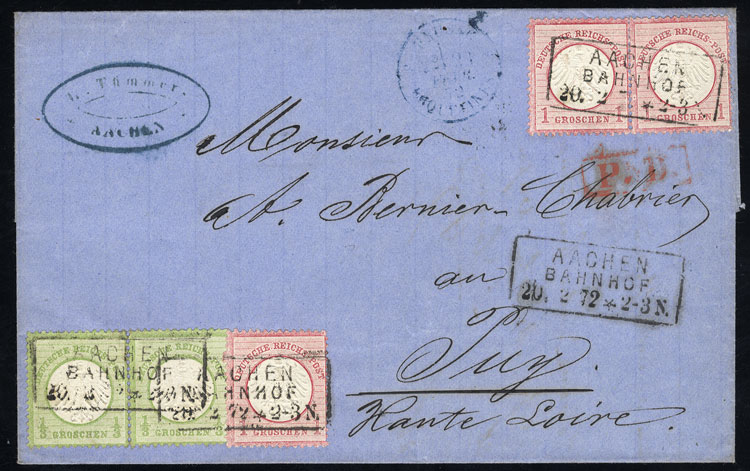 Tümmer
AACHEN
DEUTSCHE REICHS-POST
DEUTSCHE REICHS-POST
1 GROSCHEN 1
GROSCHEN 1
AACHEN
BAHNHOF
20. 2 * 2-3
P.D.
Monsieur
A. Bernier-Chabrier
au
Puy
Haute Loire.
AACHEN
BAHNHOF
20. 2 72 * 2-3 N.
DEUTSCHE REICHS-POST
1/3 GROSCHEN 1/3
1/3 GROSCHEN 1/3
1 GROSCHEN 1
AACHEN
BAHNHOF
20. 2 N.
AACHEN
BAHNHOF
20. 2 72 * 2-3 N.